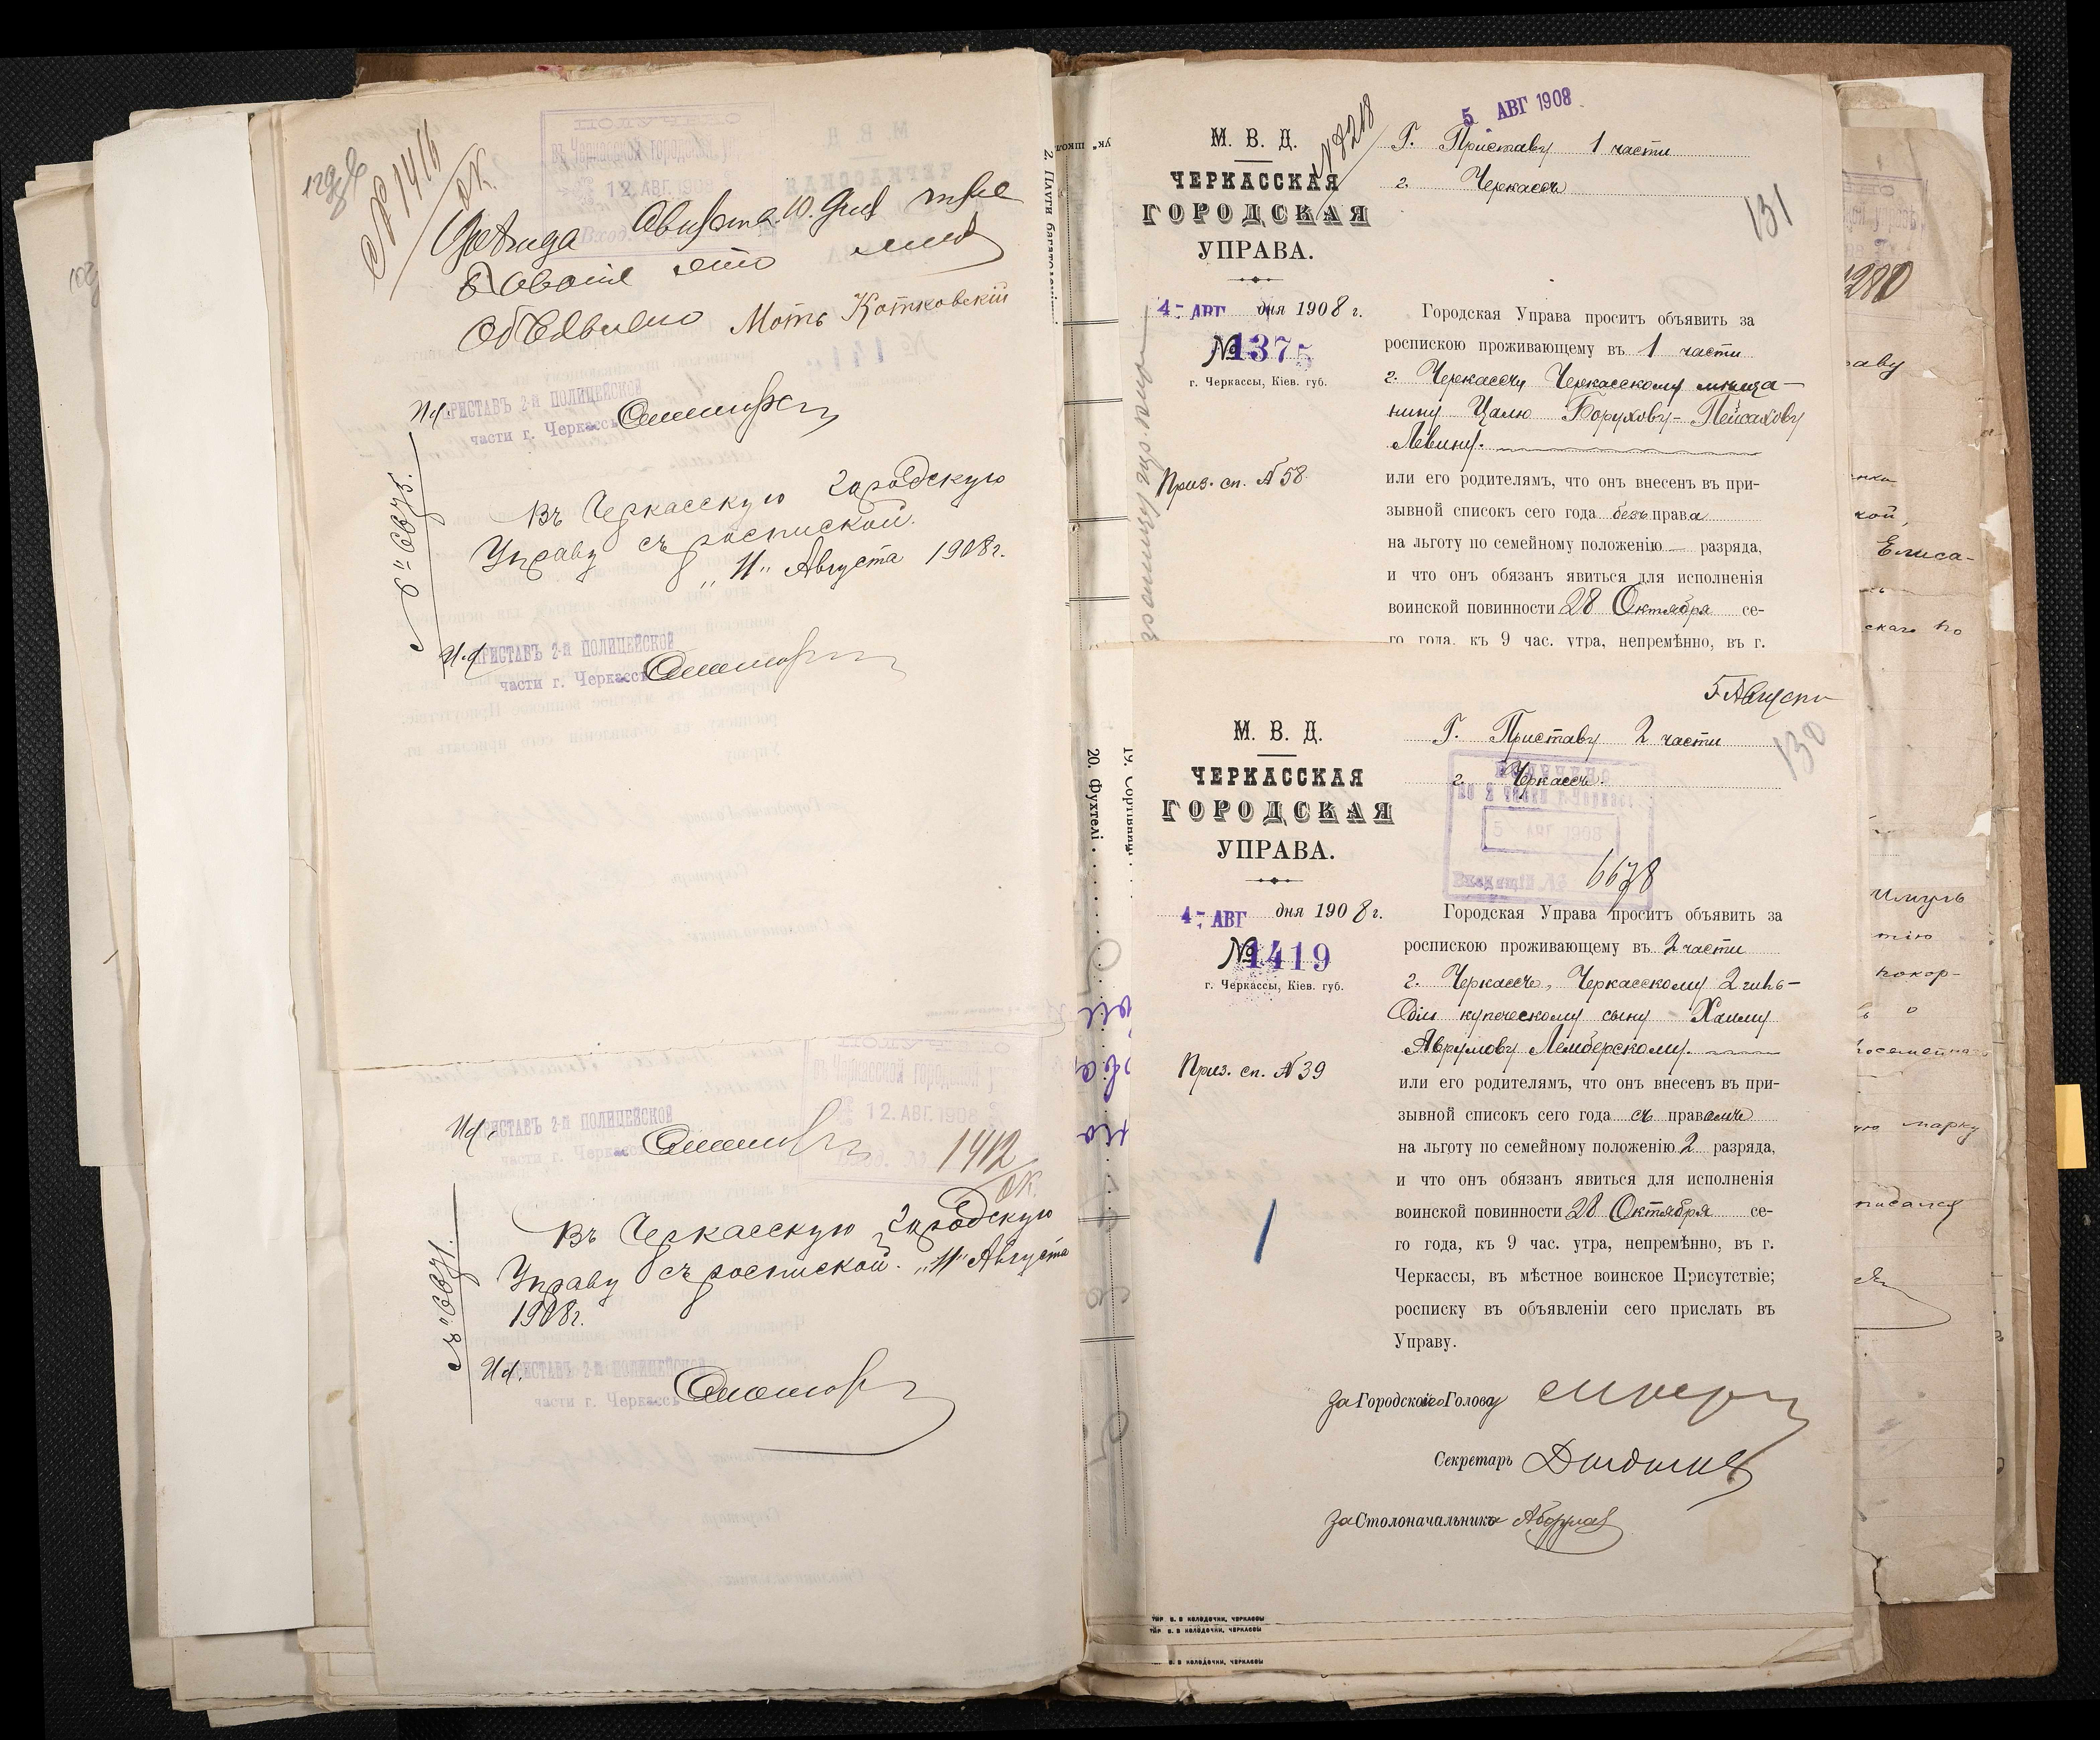 № 1416
ок.
ПОЛУЧЕНО
въ Черкасской городской
12. АВГ. 1908
Вход.
Августа 10. дня
объявлено Моть Котковскій
И.д. ПРИСТАВЪ 2-й ПОЛИЦЕЙСКОЙ
части г. Черкассъ
Въ Черкасскую Городскую
Управу съ роспиской.
„11„ Августа 1908 г.
И.д. ПРИСТАВЪ 2-й ПОЛИЦЕЙСКОЙ
части г. Черкассъ
въ Черкасской городской
12. АВГ. 1908
И.д. ПРИСТАВЪ 2-й ПОЛИЦЕЙСКОЙ
части г. Черкассъ
1412
ок.
Въ Черкасскую Городскую
Управу съ роспиской. „11„ Августа
1908 г.
И.д. ПРИСТАВЪ 2-й ПОЛИЦЕЙСКОЙ
части г. Черкассъ
20. Фухтелі
5 АВГ 1908
№ 8218
М. В. Д.
ЧЕРКАССКАЯ
ГОРОДСКАЯ
УПРАВА.
Г. Приставу 1 части
г. Черкассъ
131
4- АВГ дня 1908 г.
№ 1375
г. Черкассы, Кіев. губ.
Приз. сп. № 58
Городская Управа проситъ объявить за
роспискою проживающему въ 1 части
г. Черкассъ Черкасскому мѣща-
нину Цалю Борухову-Пейсахову
Левину.
или его родителямъ, что онъ внесенъ въ при-
зывной списокъ сего года безъ права
на льготу по семейному положенію — разряда,
и что онъ обязанъ явиться для исполненія
воинской повинности 28 Октября се-
го года, къ 9 час. утра, непремѣнно, въ г.
5 Августа
130
М. В. Д.
ЧЕРКАССКАЯ
ГОРОДСКАЯ
УПРАВА.
Г. Приставу 2 части
г. Черкассъ.
5 АВГ 1908
Входящій №
6678
4- АВГ дня 1908 г.
№ 1419
г. Черкассы, Кіев. губ.
Приз. сп. № 39
Городская Управа проситъ объявить за
роспискою проживающему въ 2 части
г. Черкассъ, Черкасскому 2 гиль-
діи купеческому сыну Хаиму
Аврумову Лемберскому.
или его родителямъ, что онъ внесенъ въ при-
зывной списокъ сего года съ правомъ
на льготу по семейному положенію 2 разряда,
и что онъ обязанъ явиться для исполненія
воинской повинности 28 Октября се-
го года, къ 9 час. утра, непремѣнно, въ г.
Черкассы, въ мѣстное воинское Присутствіе;
росписку въ объявленіи сего прислать въ
Управу.
За Городского Голову
Секретарь
За Столоначальника
ТИР. В. В КОЛОДОЧКИ, ЧЕРКАССЫ
ТИР. В. В КОЛОДОЧКИ, ЧЕРКАССЫ
В. В КОЛОДОЧКИ, ЧЕРКАССЫ
Елиса-
покор-
марку